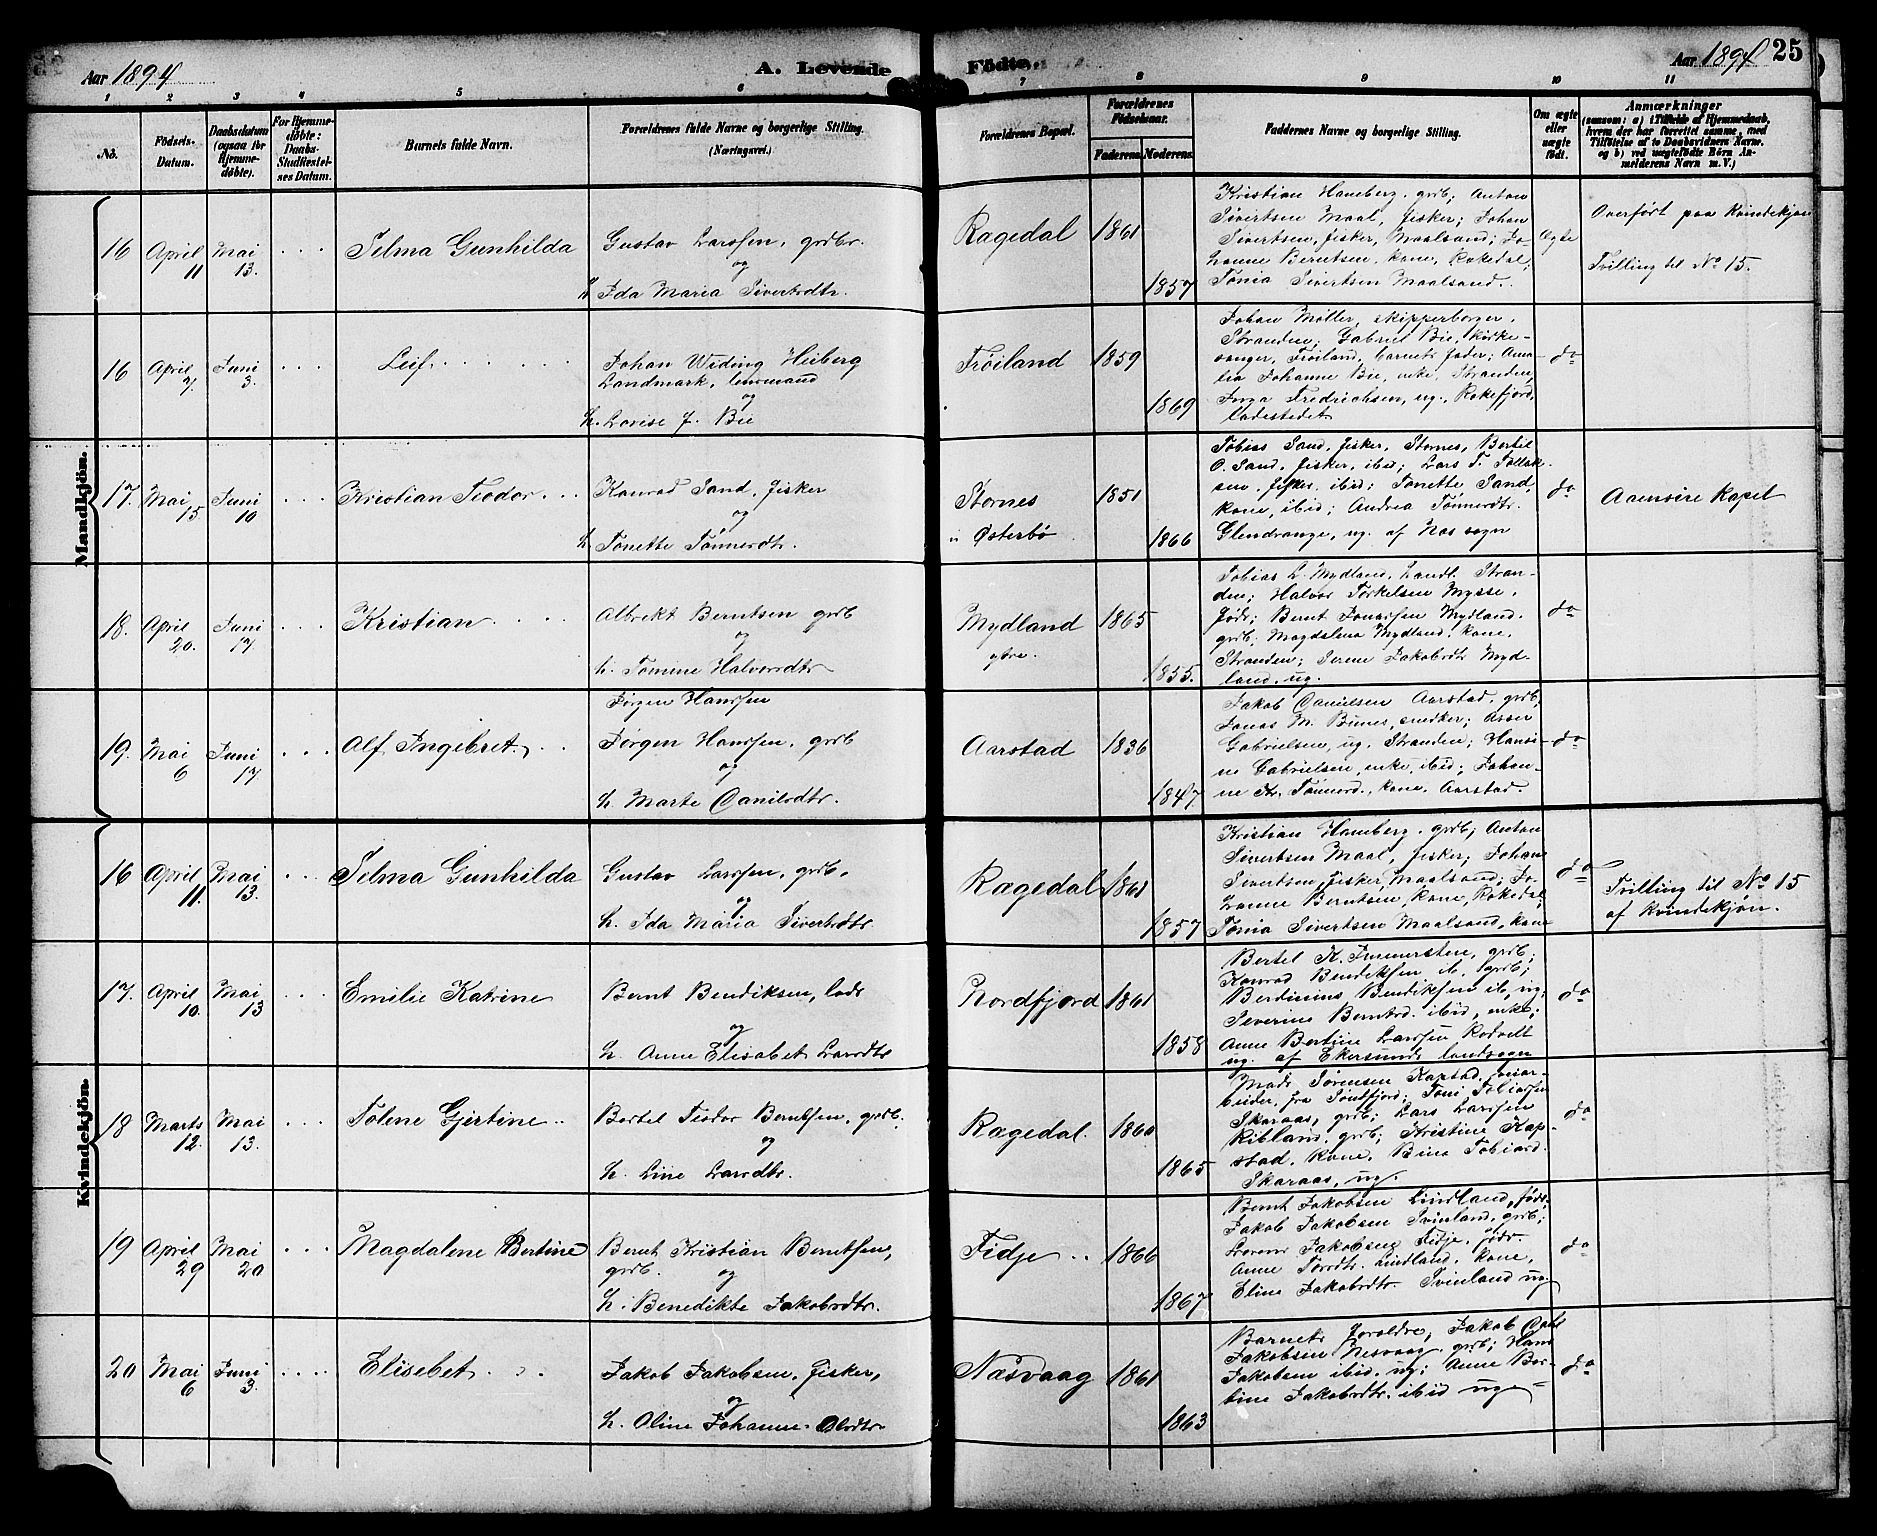 Aar 1894
A. Levende
Fødte.
Aar 1894
25
1
2
3
4
5
6
7
8
9
10
11
No.
Fødsels-
Datum.
Daabsdatum
(ogsaa for
Hjemme-
døbte).
For Hjemme-
døbte:
Daabs-
Stadfæstel-
ses Datum.
Barnets fulde Navn.
Forældrenes fulde Navne og borgerlige Stilling.
(Næringsvei.)
Forældrenes Bopæl.
Forældrenes
Fødselsaar.
Faderens.
Moderens.
Faddernes Navne og borgerlige Stilling.
Om ægte
eller
uægte
født.
Anmærkninger
(saasom: a) i Tilfælde af Hjemmedaab,
hvem der har forrettet samme, med
Tilføielse af to Daabsvidners Navne.
og b) ved uægtefødte Børn An-
melderens Navn m. V.)
Mandkjön.
16
April
11
Mai
13.
Selma Gunhilda
Gustav Larssen, grdbr.
og
h. Ida Maria Sivertsdtr.
Ragedal
1861
1857
Kristian Haneberg, grdb; Anton
Sivertsen Maal, fisker; Johan
Sivertsen, fisker, Maalsand; Jo-
hanne Berntsen, kone, Rakedal;
Tonia Sivertsen Maalsand.
Ægte
Overført paa Kvindekjøn
Tvilling til No 15.
16
April
7.
Juni
3.
Leif
Johan Widing Heiberg
Landmark, lensmand
og
h. Lovise J. Bie
Frøiland
1859
1869
Johan Møller, skipperborger,
Stranden; Gabriel Bie, kirke-
sanger, Frøiland, barnets fader; Ama-
lia Johanne Bie, enke, Stranden,
Inga Fredrichsen, ug. Rekefjord
ladestedet
do
17.
Mai
15.
Juni
10
Kristian Teodor
Konrad Sand, fisker
og
h. Tonette Tønnesdtr.
Stornes
i Østerbø
1851
1866
Tobias Sand, fisker, Stornes, Bertel
O. Sand, fisker, ibid; Lars T. Tollak-
sen, fisker, ibid; Tonette Sand,
kone, ibid; Andrea Tønnesdtr.
Glendrange, ug. af Næs sogn
do
Aamsire Kapel
18.
April
20.
Juni
17.
Kristian
Albrekt Berntsen grdb
og
h. Tomine Halvorsdtr
Mydland
ytre.
1865
1855.
Tobias L. Mydland, Landh. Stran-
den; Halvor Torkelsen Mysse,
føds; Bernt Jonassen Mydland.
grdb. Magdalena Mydland, kone,
Stranden; Serene Jakobsdtr Myd-
land, ug.
do
19.
Mai
6
Juni
17
Alf Ingebret
Jørgen Hanssen
Jørgen Hanssen, grdb
og
h. Marte Danielsdtr.
Aarstad
1836
1847
Jakob Danielsen Aarstad, grdb,
Jonas M. Bønes, snedker; Asser
Gabrielsen, ug. Stranden; Hansi-
ne Gabrielsen, enke, ibid; Johan-
ne Kr. Tønnesd., kone, Aarstad.
do
Kvindekjön.
16
April
11.
Mai
13.
Selma Gunhilda
Gustav Larssen, grdb,
og
h. Ida Maria Sivertsdtr
Ragedal
1861
1857
Kristian Haneberg, grdb; Anton
Sivertsen Maal, fisker; Johan
Sivertsen, fisker, Maalsand; Jo-
hanne Berntsen, kone, Rakedal,
Tonia Sivertsen Maalsand, kone
do
Tvilling til No 15
af Kvindekjøn.
17.
April
10.
Mai
13
Emilie Katrine
Bernt Bendiksen, lods
og
h. Anne Elisabet Larsdtr
Nordfjord
1861
1858
Bertel K. Immersten, grdb;
Konrad Bendiksen ib, grdb;
Berdinius Bendiksen ib, ug;
Severine Berntsd. ibid, enke;
Anne Bertine Larssen Rodvelt
ug. af Ekersunds landsogn
do
18
Marts
12.
Mai
13.
Tolene Gjertine
Bertel Teodor Berntsen, grdb,
og
h. Line Larsdtr.
Ragedal.
1860
1865
Mads Sørensen Kapstad, anar-
beider, fra Søndfjord; Toni Tobiassen
Skaraas, grdb; Lars Larssen
Ribland, grdb; Kristine Kap-
stad, kone, Bina Tobiasd.
Skaraas, ug.
do
19
April
29
Mai
20
Magdalene Bertine
Bernt Kristian Berntsen,
grdb.
og
h. Benedikte Jakobsdtr.
Fidje
1866
1867
Bernt Jakobsen Lindland, føds,
Jakob Jakobsen Svinland, grdb;
Jakobsen Fidje, føds.
Anne Torsdtr. Lindland, kone,
Eline Jakobsdtr. Svinland ug.
do
20
Mai
6
Juni
3.
Elisebet
Jakob Jakobsen, fisker,
og
h. Oline Johanne Olsdtr
Næsvaag
1861
1863
Barnets forældre, Jakob
Jakobsen Nesvaag, grdb; Hans
Jakobsen ibid, ug; Anne Ber-
tine Jakobsdtr. ibid ug
do